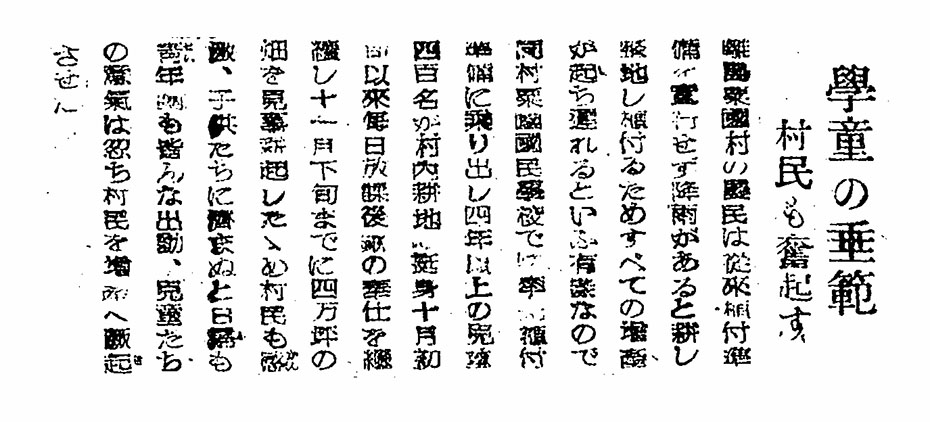 學童の垂範
村民も奮起す
離島粟國村の農民は從來植付準
備を實行せず降雨があると耕し
整地し植付るためすべての増産
が起ち遲れるといふ有樣なので
同村粟國國民學校では率先植付
準備に乘り出し四年以上の兒童
四百名が村内耕地に挺身十月初
旬以來毎日放課後鍬の奉仕を繼
續し十一月下旬までに四万坪の
畑を見事耕起したゝめ村民も感
激、子供たちに濟まぬと日曜も
青年團も皆んな出動、兒童たち
の意氣は忽ち村民を増産へ蹶起
させた